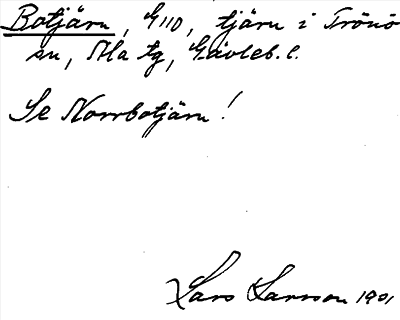 Botjärn, G110, tjärn i Trönö
sn, Ala tg, Gävleb. l.
Se Norrbotjärn!
Lars Larsson 1901